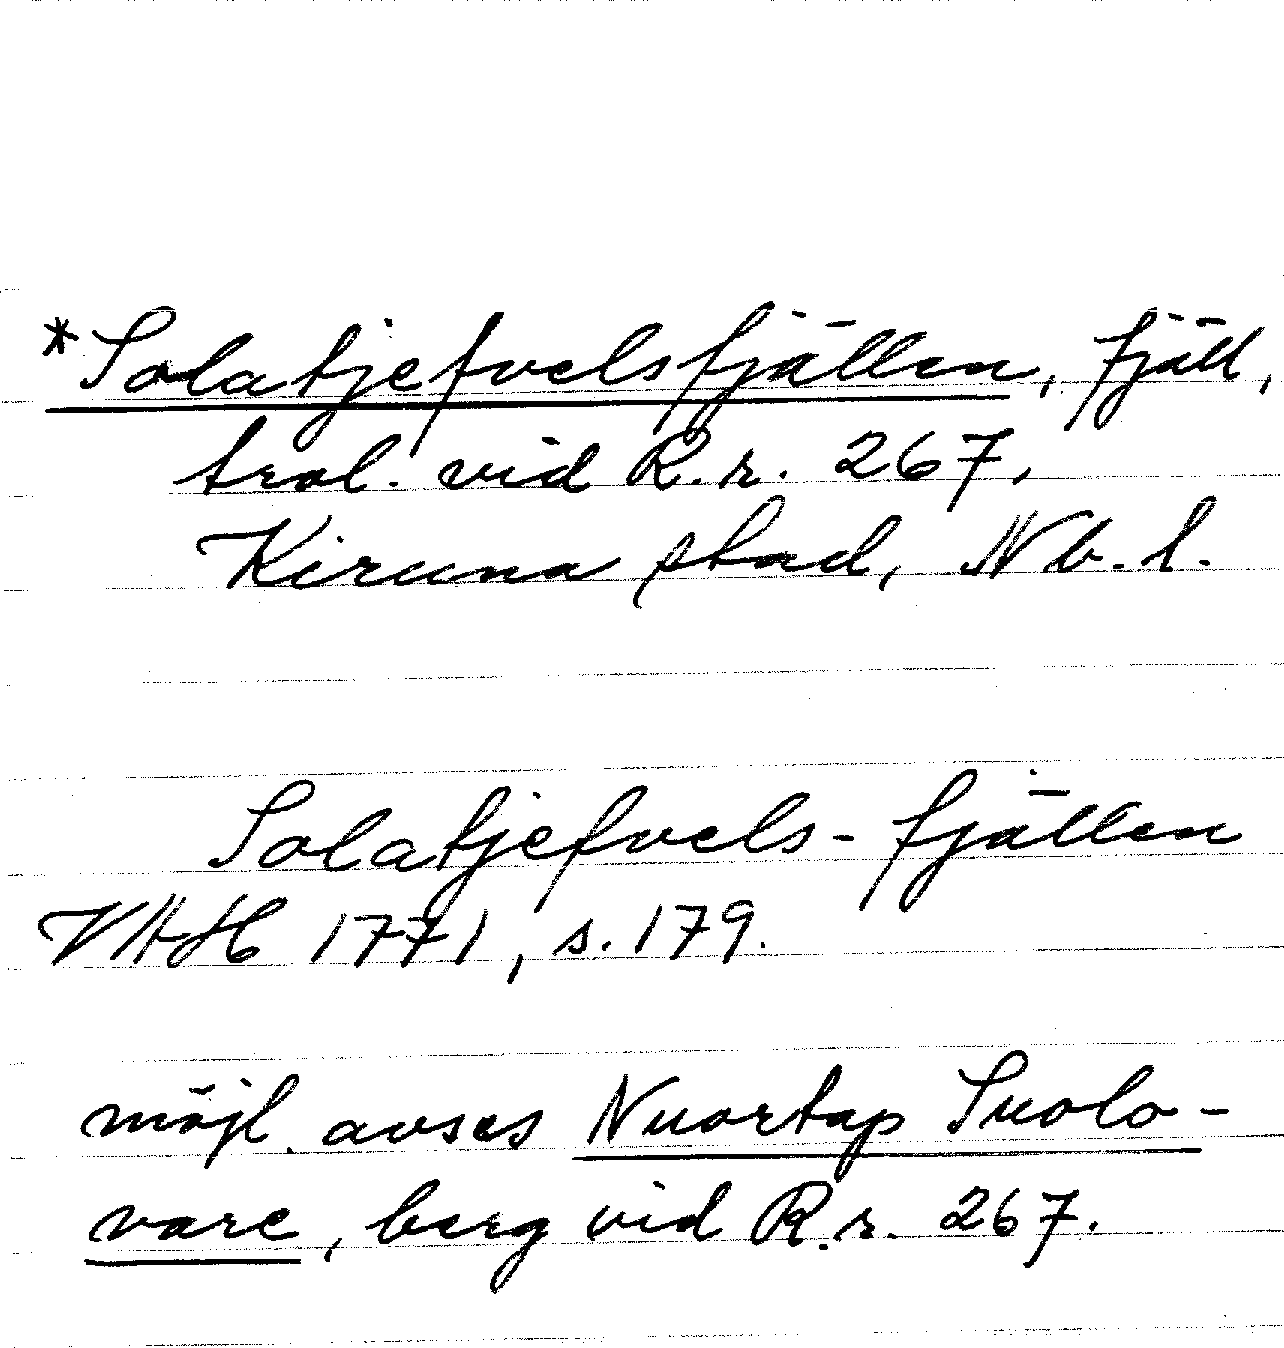 *Solatjefvelsfjällen, fjäll,
trol. vid R.r. 267,
Kiruna stad, Nb. l.
Solatjefvels-fjällen
VHAH 1771, s. 179.
möjl. avses Nuortap Suolo-
vare, berg vid R.r. 267.